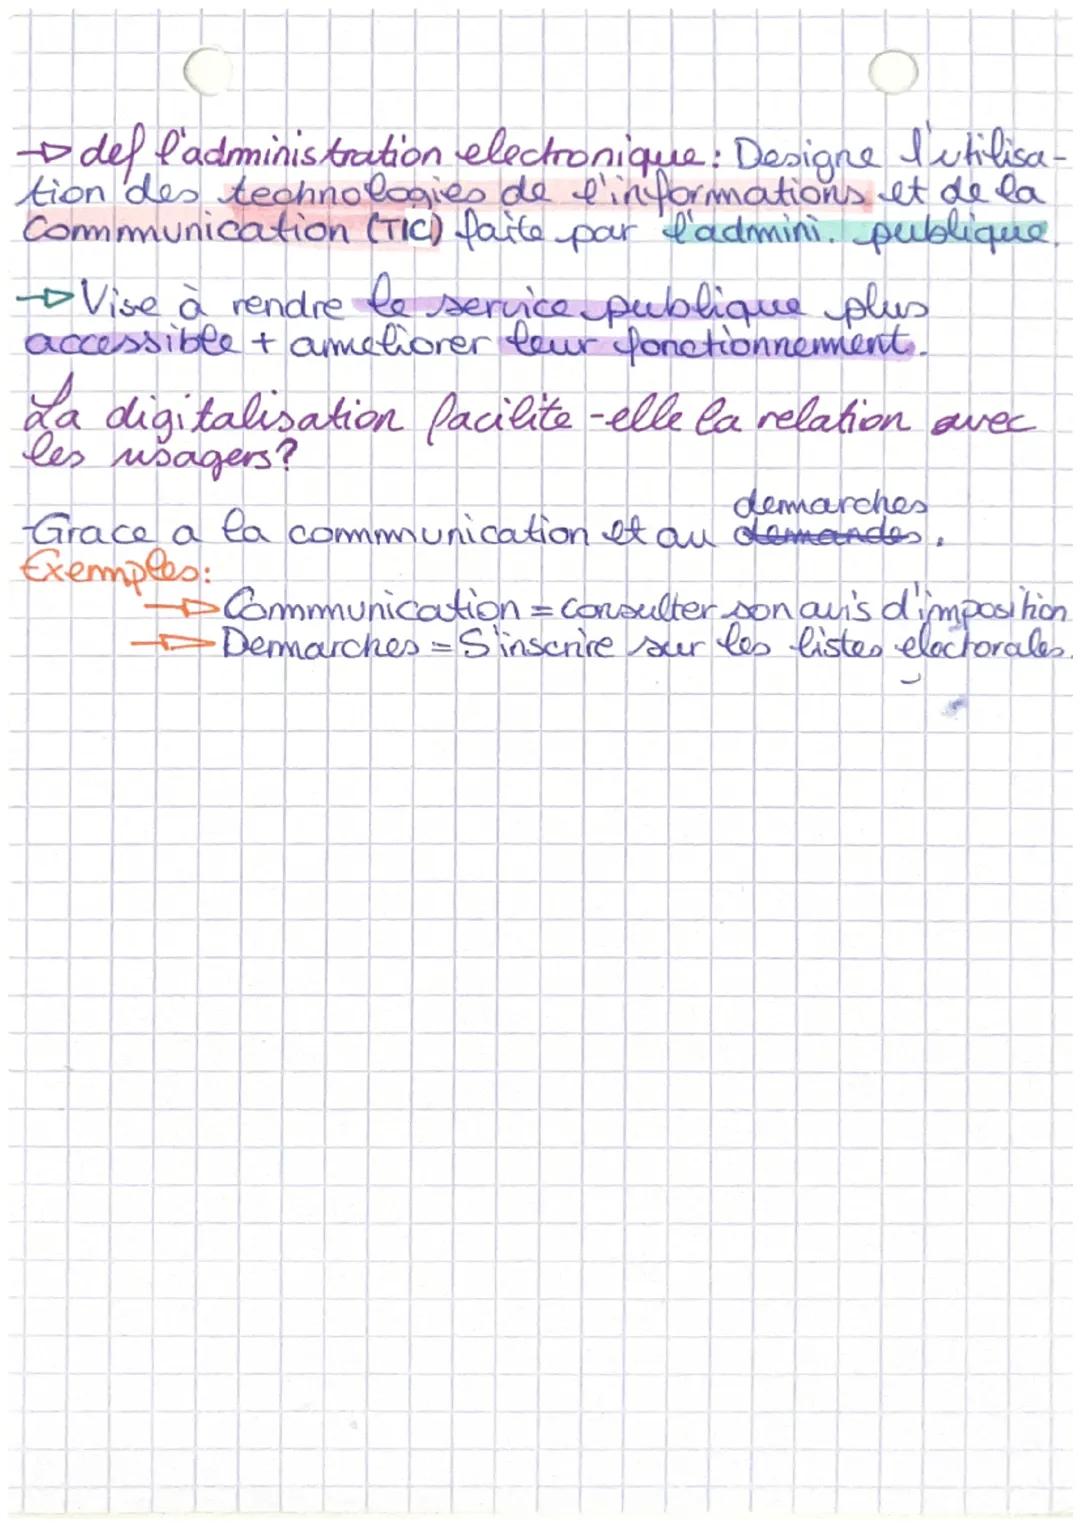 → def l'administration electronique: Designe l'utilisa-
tion des technologies de l'informations et de la
Communication (TIC) faite par l'admini. publique.
→ Vise à rendre le service publique plus
accessible + ameliorer leur fonctionnement.
La digitalisation facilite-elle la relation avec
les usagers?
demarches
Grace a la communication et au demandes.
Exemples:
→ Communication = consulter son avis d'imposition
→ Demarches = S'inscrire sur les listes electorales.